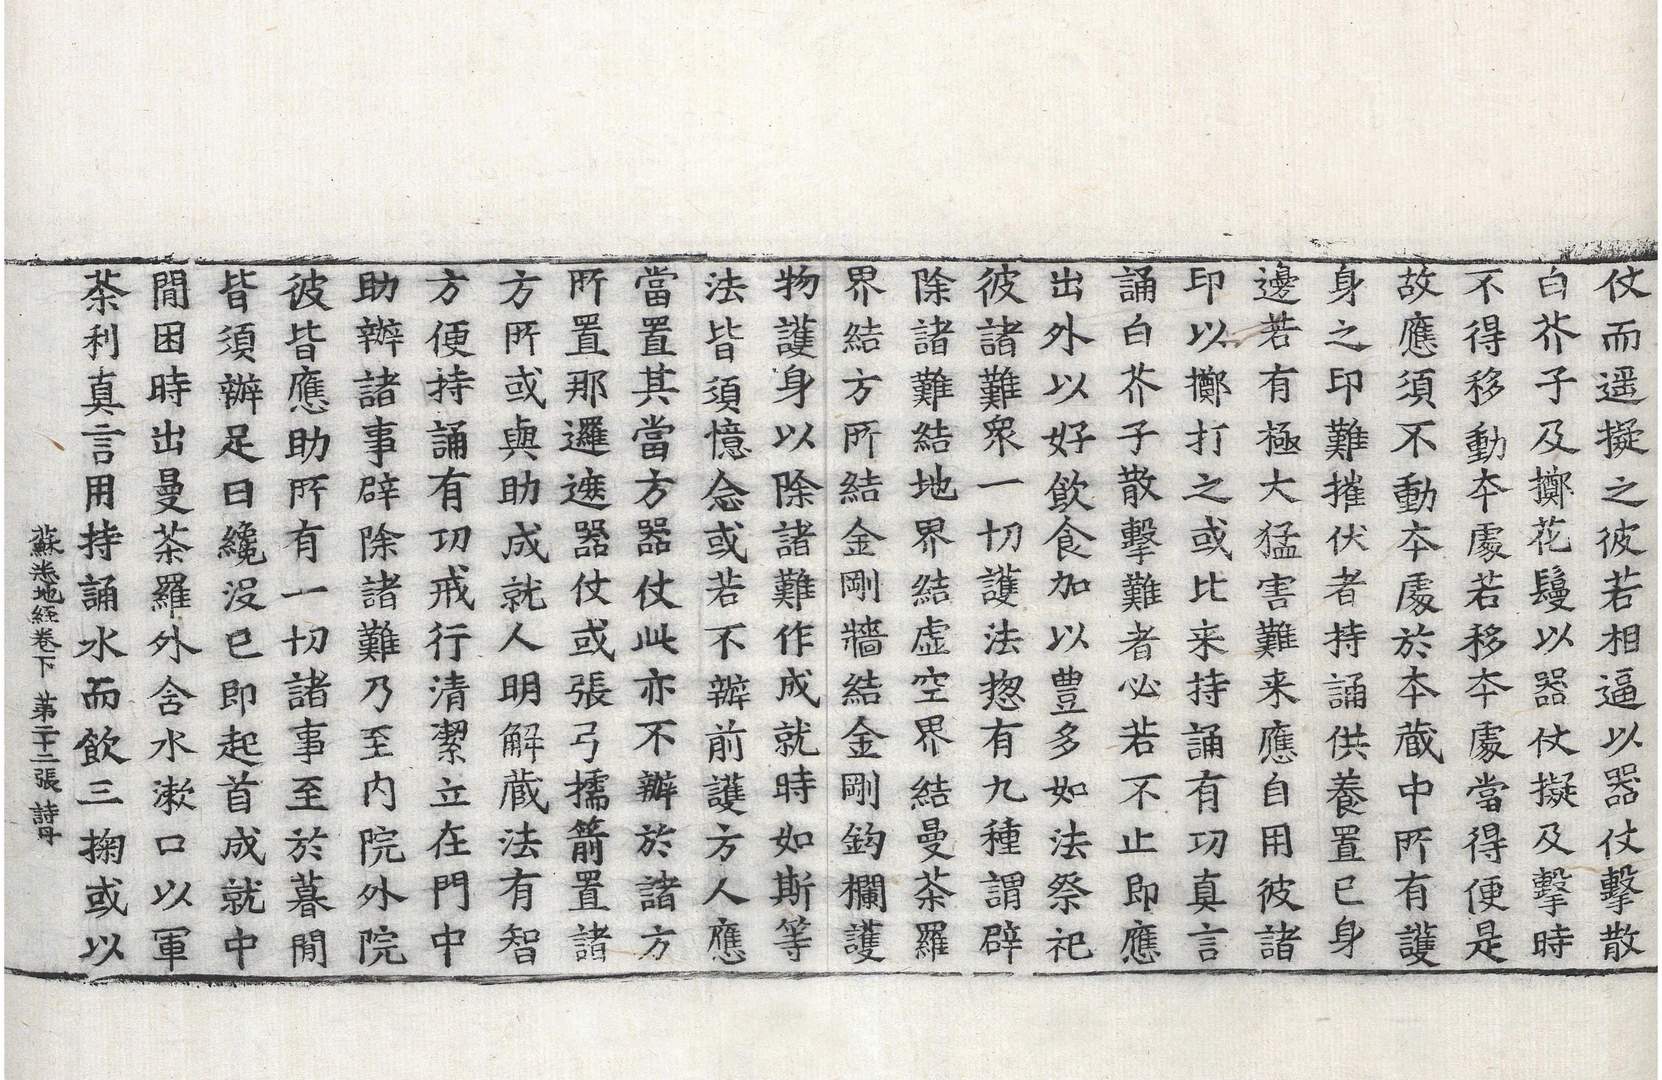 仗而遥擬之彼若相逼以器仗擊散
白芥子及擲花鬘以器仗擬及擊時
不得移動夲處若移夲處當得便是
故應須不動夲處於夲藏中所有護
身之印難摧伏者持誦供養置已身
邊若有極大猛害難来應自用彼諸
印以擲打之或比来持誦有功真言
誦白芥子散擊難者必若不止即應
出外以好飲食加以豊多如法祭祀
彼諸難衆一切護法揔有九種謂辟
除諸難結地界結虛空界結曼荼羅
界結方所結金剛牆結金剛鈎欄護
物護身以除諸難作成就時如斯等
法皆須憶念或若不辦前護方人應
當置其當方器仗此亦不辦於諸方
所置那邏遮器仗或張弓擩箭置諸
方所或與助成就人明解藏法有智
方便持誦有功戒行清潔立在門中
助辦諸事辟除諸難乃至內院外院
彼皆應助所有一切諸事至於暮間
皆須辦足日纔沒已即起首成就中
間困時出曼荼羅外含水漱口以軍
荼利真言用持誦水而飲三掬或以
蘇悉地經卷下　第二十三張　詩